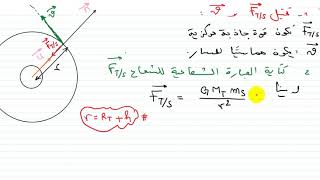 1- تمثيل F⃗T/S ، ϑ⃗
F⃗T/S تكون قوة جاذبة مركزية
ϑ⃗ يكون مماسيا للمسار
2- كتابة العبارة الشعاعية للشعاع F⃗T/S
F⃗T/S = G MT mS / r² ·
r = RT + h #
ϑ⃗
F⃗T/S
u⃗
r